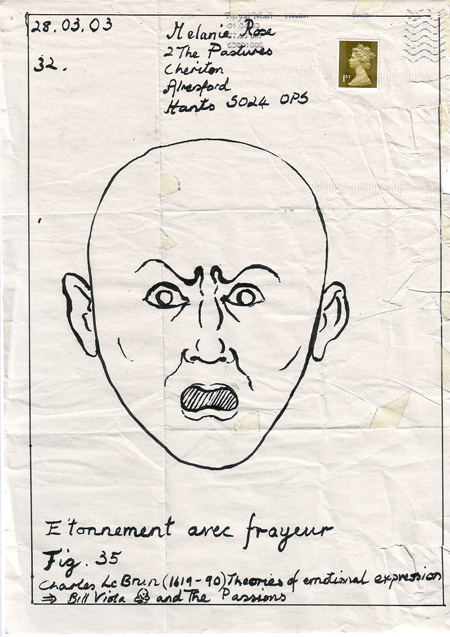 28.03.03
32.
Melanie Rose
2 The Pastures
Cheriton
Alresford
Hants SO24 0PS
1ST
Etonnement avec frayeur
Fig. 35
Charles Le Brun (1619-90) Theories of emotional expression
⇒ Bill Viola and The Passions